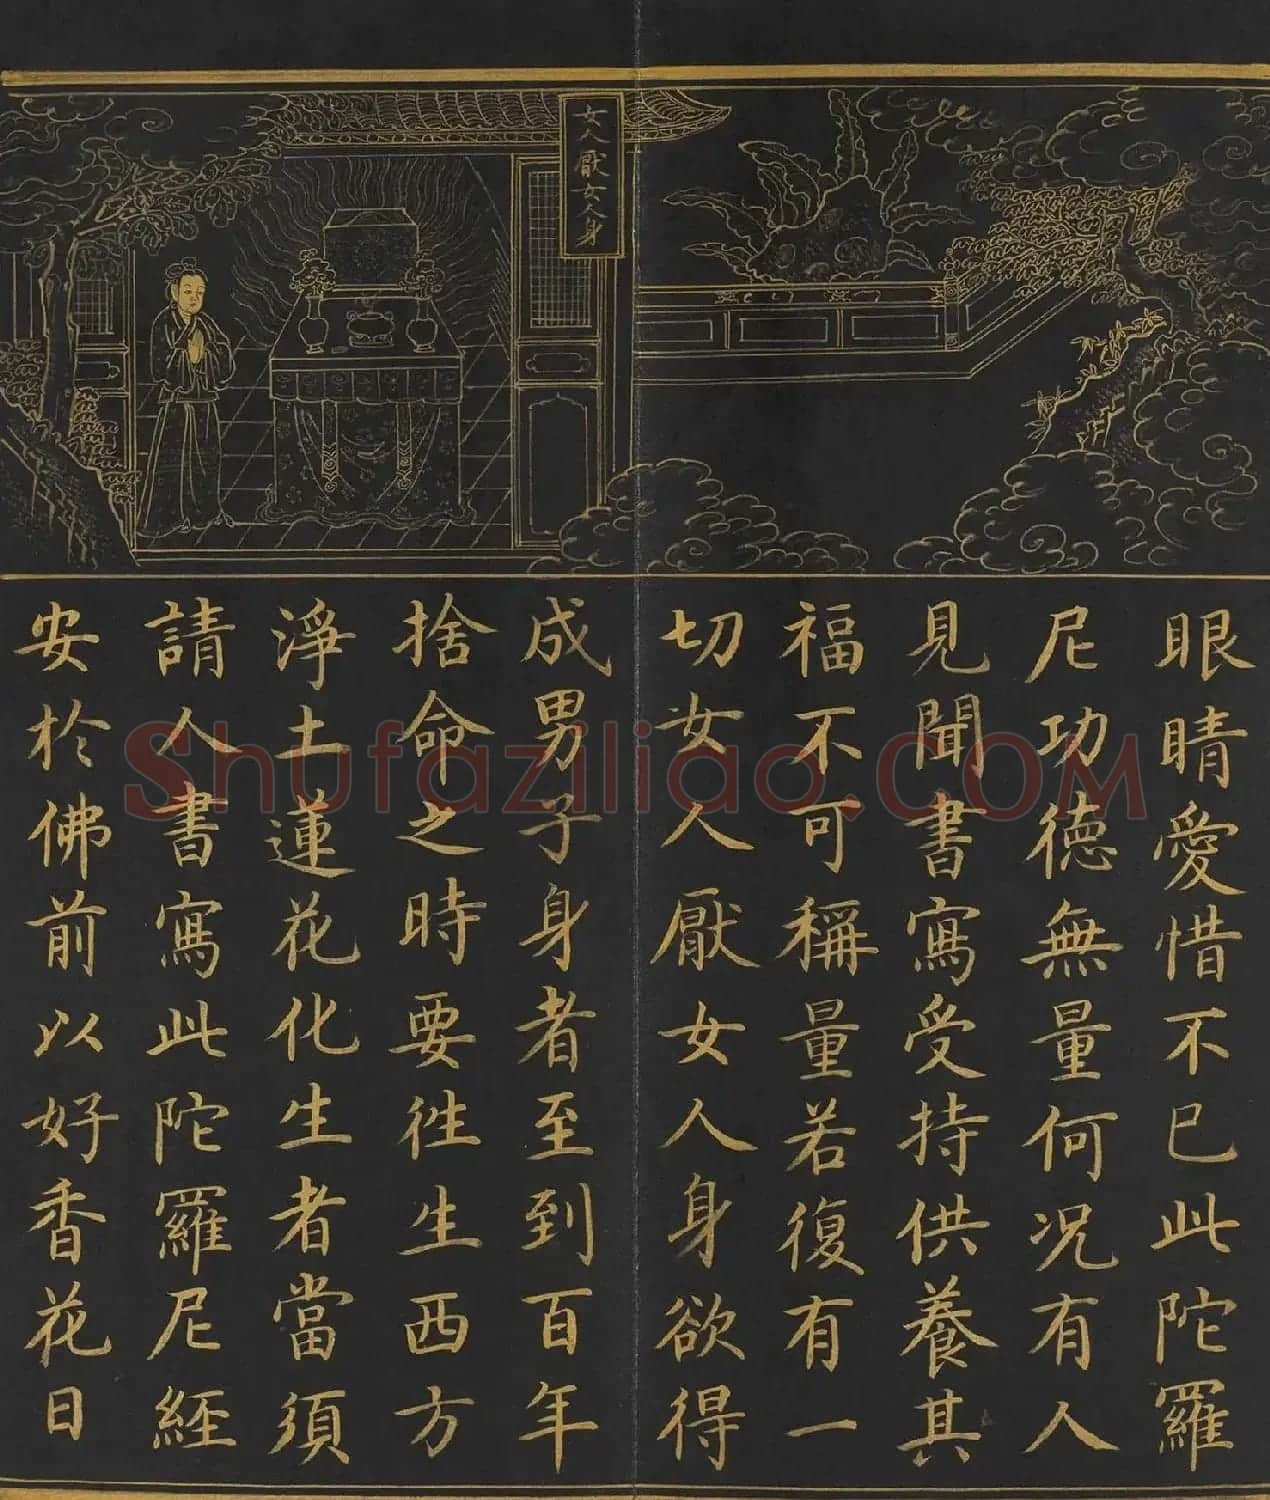 女人厭女人身
眼睛愛惜不已此陀羅
尼功德無量何況有人
見聞書寫受持供養其
福不可稱量若復有一
切女人厭女人身欲得
成男子身者至到百年
捨命之時要往生西方
淨土蓮花化生者當須
請人書寫此陀羅尼經
安於佛前以好香花日
Shufaziliao.COM